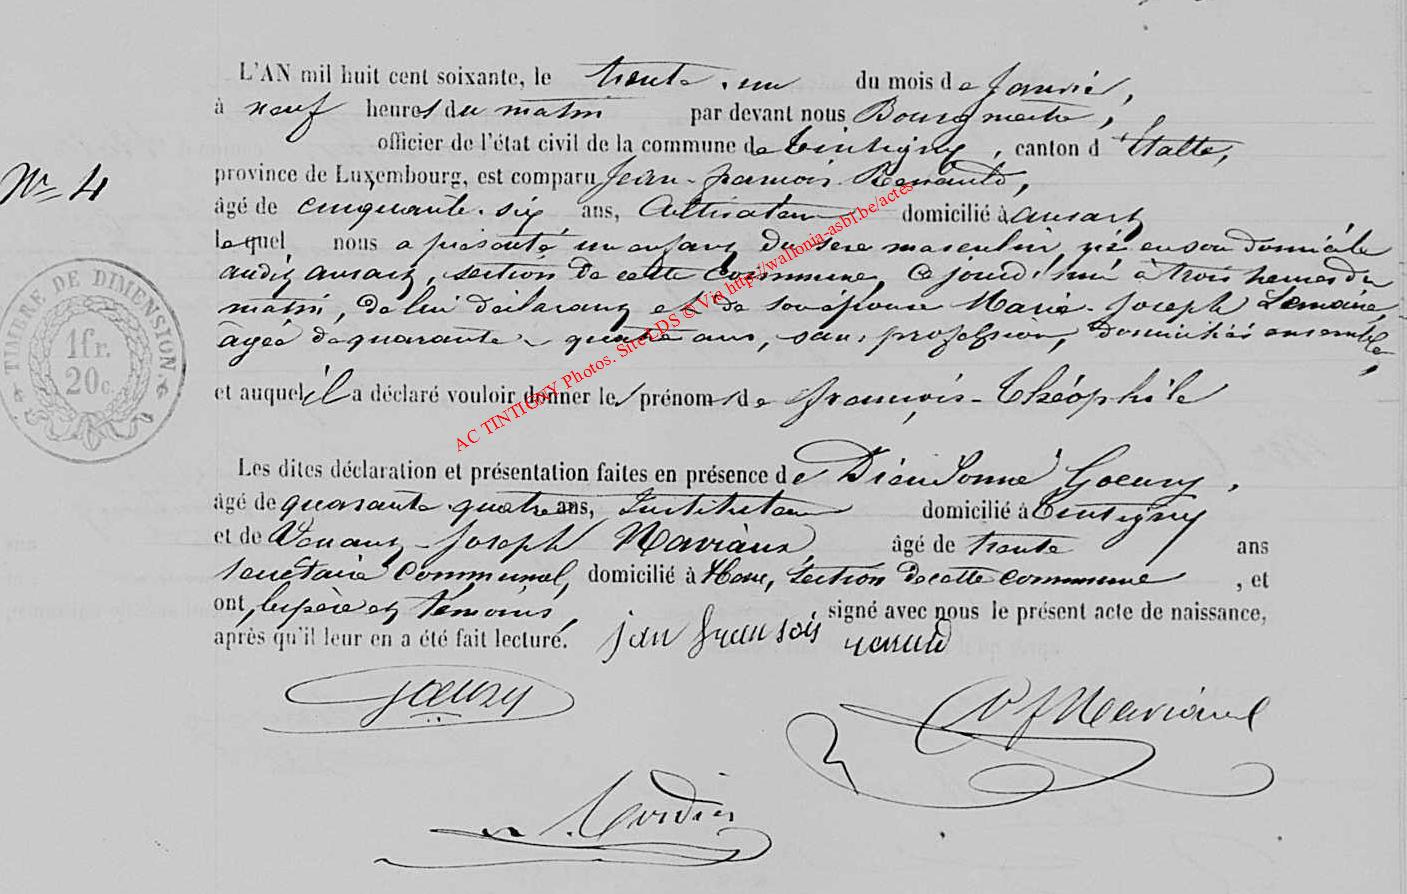 L'AN mil huit cent soixante, le trente-un du mois de Janvier,
à neuf heures du matin par devant nous Bourgmestre,
officier de l'état civil de la commune de Tintigny, canton d'Etalle,
N° 4
province de Luxembourg, est comparu Jean-françois Renauld,
âgé de cinquante-six ans, Cultivateur domicilié à ansart
lequel nous a présenté un enfant du sexe masculin, né en son domicile
audit ansart, section de cette commune, ce jourd'hui à trois heures du
matin, de lui déclarant et de son épouse Marie-Joseph Lemaire,
âgée de quarante-quatre ans, sans profession, domiciliés ensemble,
TIMBRE DE DIMENSION.
1 fr.
20 c.
et auquel il a déclaré vouloir donner les prénoms de françois-Théophile
Les dites déclaration et présentation faites en présence de Dieudonné Goeury,
âgé de quarante-quatre ans, Instituteur domicilié à Tintigny
et de Venant-Joseph Naviaux âgé de trente ans
Secrétaire Communal, domicilié à Han, section de cette commune, et
ont, les père et témoins, signé avec nous le présent acte de naissance,
après qu'il leur en a été fait lecture. jan fransois renauld
Goeury
VJ Naviaux
AC TINTIGNY Photos. Site LDS © Via http://wallonia-asbl.be/actes